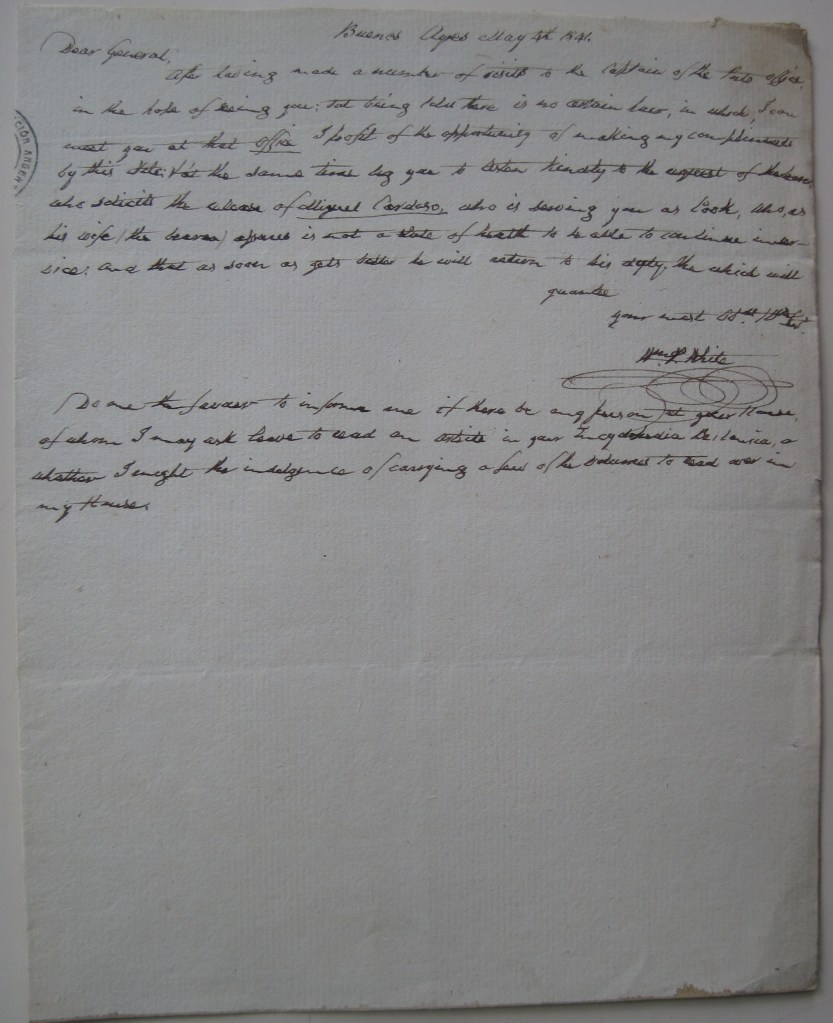 Buenos Ayres May 4th 1841.
Dear General,
After having made a number of visits to the Captain of the Ports office,
in the hope of seeing you; but being told there is no certain hour, in which, I can
meet you at that office I profit of the opportunity of making my compliments
by this Note; & at the same time beg you to listen kindly to the request of the bearer,
who solicits the release of Miguel Cardoso, who is serving you as Cook, who, as
his wife (the bearer) assures is not a state of health to be able to continue in ser-
vice; and that as soon as gets better he will return to his duty, the which will
guarantee
your most Obt. Hble St.
Wm P. White
Do me the favour to inform me if there be any person at your House,
of whom I may ask leave to read an article in your Encyclopedia Britanica, or
whether I might the indulgence of carrying a few of the volumes to read over in
my House.